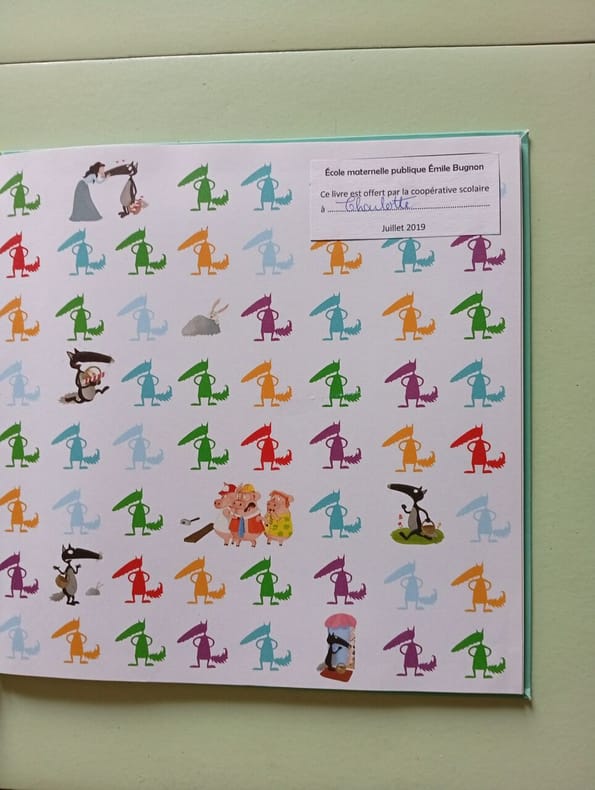 École maternelle publique Émile Bugnon
Ce livre est offert par la coopérative scolaire
à ... Charlotte ...
Juillet 2019